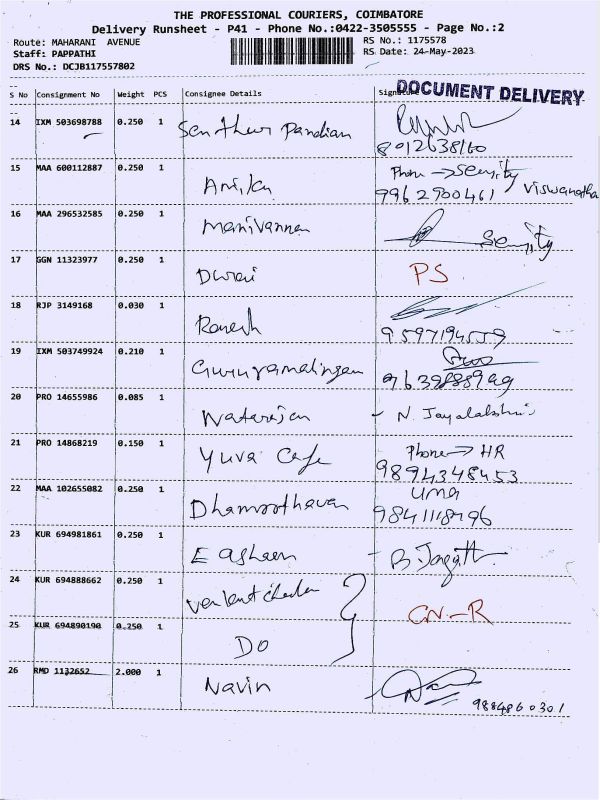 THE PROFESSIONAL COURIERS, COIMBATORE
Delivery Runsheet - P41 - Phone No.:0422-3505555 - Page No.:2
Route: MAHARANI AVENUE RS No.: 1175578
Staff: PAPPATHI RS Date: 24-May-2023
DRS No.: DCJB117557802
DOCUMENT DELIVERY
S No Consignment No Weight PCS Consignee Details Signature
14 IXM 503698788 0.250 1 Senthur Pandian
8012638160
15 MAA 600112887 0.250 1 Phone → Security
9962900461 Viswanatha
16 MAA 296532585 0.250 1 Manivannan Security
17 GGN 11323977 0.250 1 Durai PS
18 RJP 3149168 0.030 1 Ramesh
9597194559
19 IXM 503749924 0.210 1 Gururamalingam
20 PRO 14655986 0.085 1 Natarajan - N. Jayalakshmi
21 PRO 14868219 0.150 1 Yuva Cafe Phone → HR
9894348453
22 MAA 102655082 0.250 1 Dhamoothavan Uma
9841118496
23 KUR 694981861 0.250 1 - B. Jagatt
24 KUR 694888662 0.250 1 CN-R
25 KUR 694890190 0.250 1 DO
26 RMD 1132652 2.000 1 Navin
9884860301